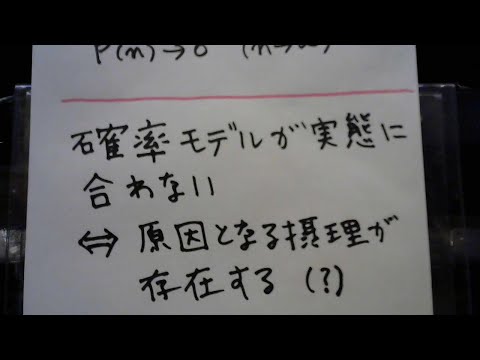 P(n)→0 (n→∞)
確率モデルが実態に
合わない
⇔ 原因となる摂理が
存在する (?)